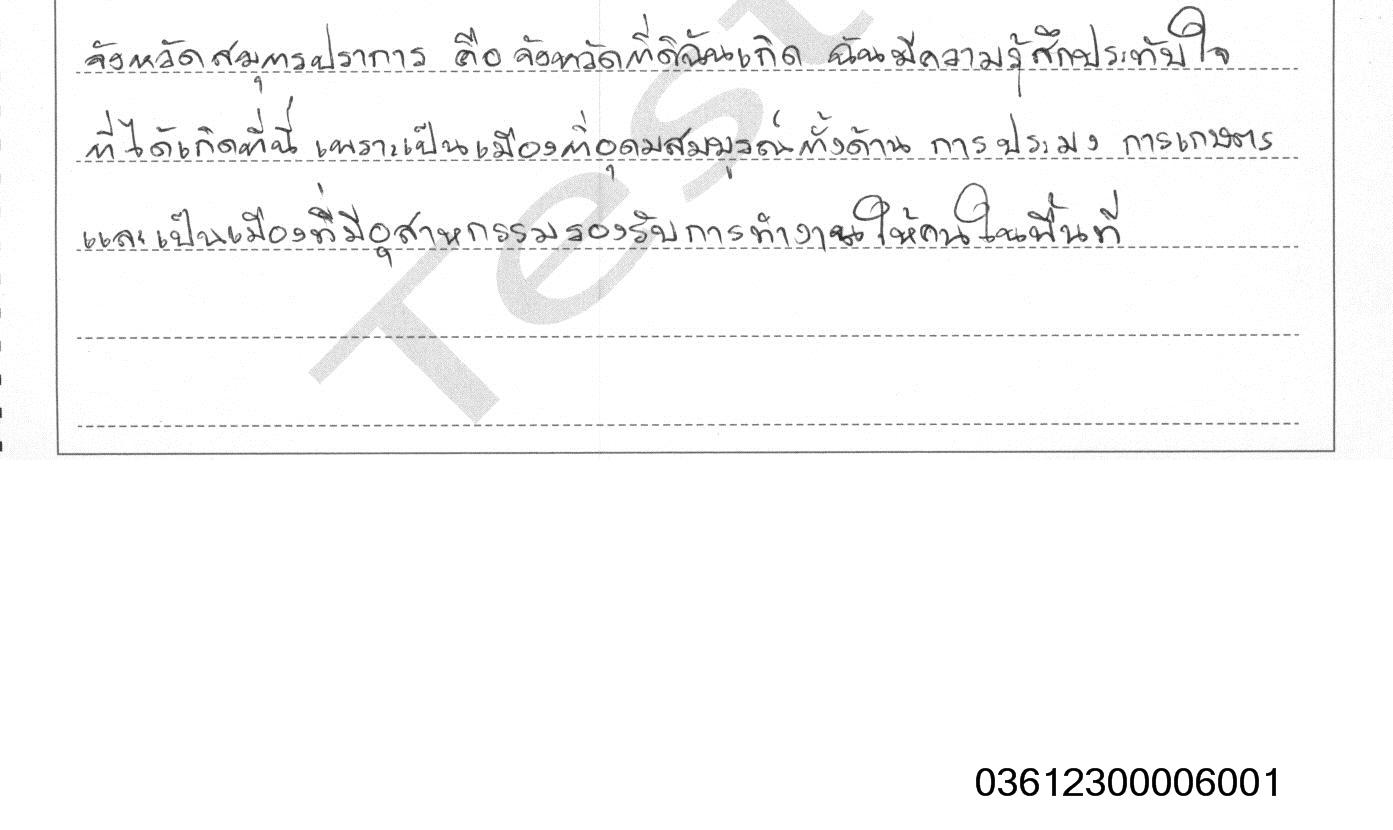 จังหวัดสมุทรปราการ คือ จังหวัดที่ดิฉันเกิด ฉันมีความรู้สึกประทับใจ
ที่ได้เกิดที่นี่ เพราะเป็นเมืองที่อุดมสมบูรณ์ทั้งด้าน การประมง การเกษตร
และเป็นเมืองที่มีอุสาหกรรมรองรับการทำงานให้คนในพื้นที่
Test
03612300006001